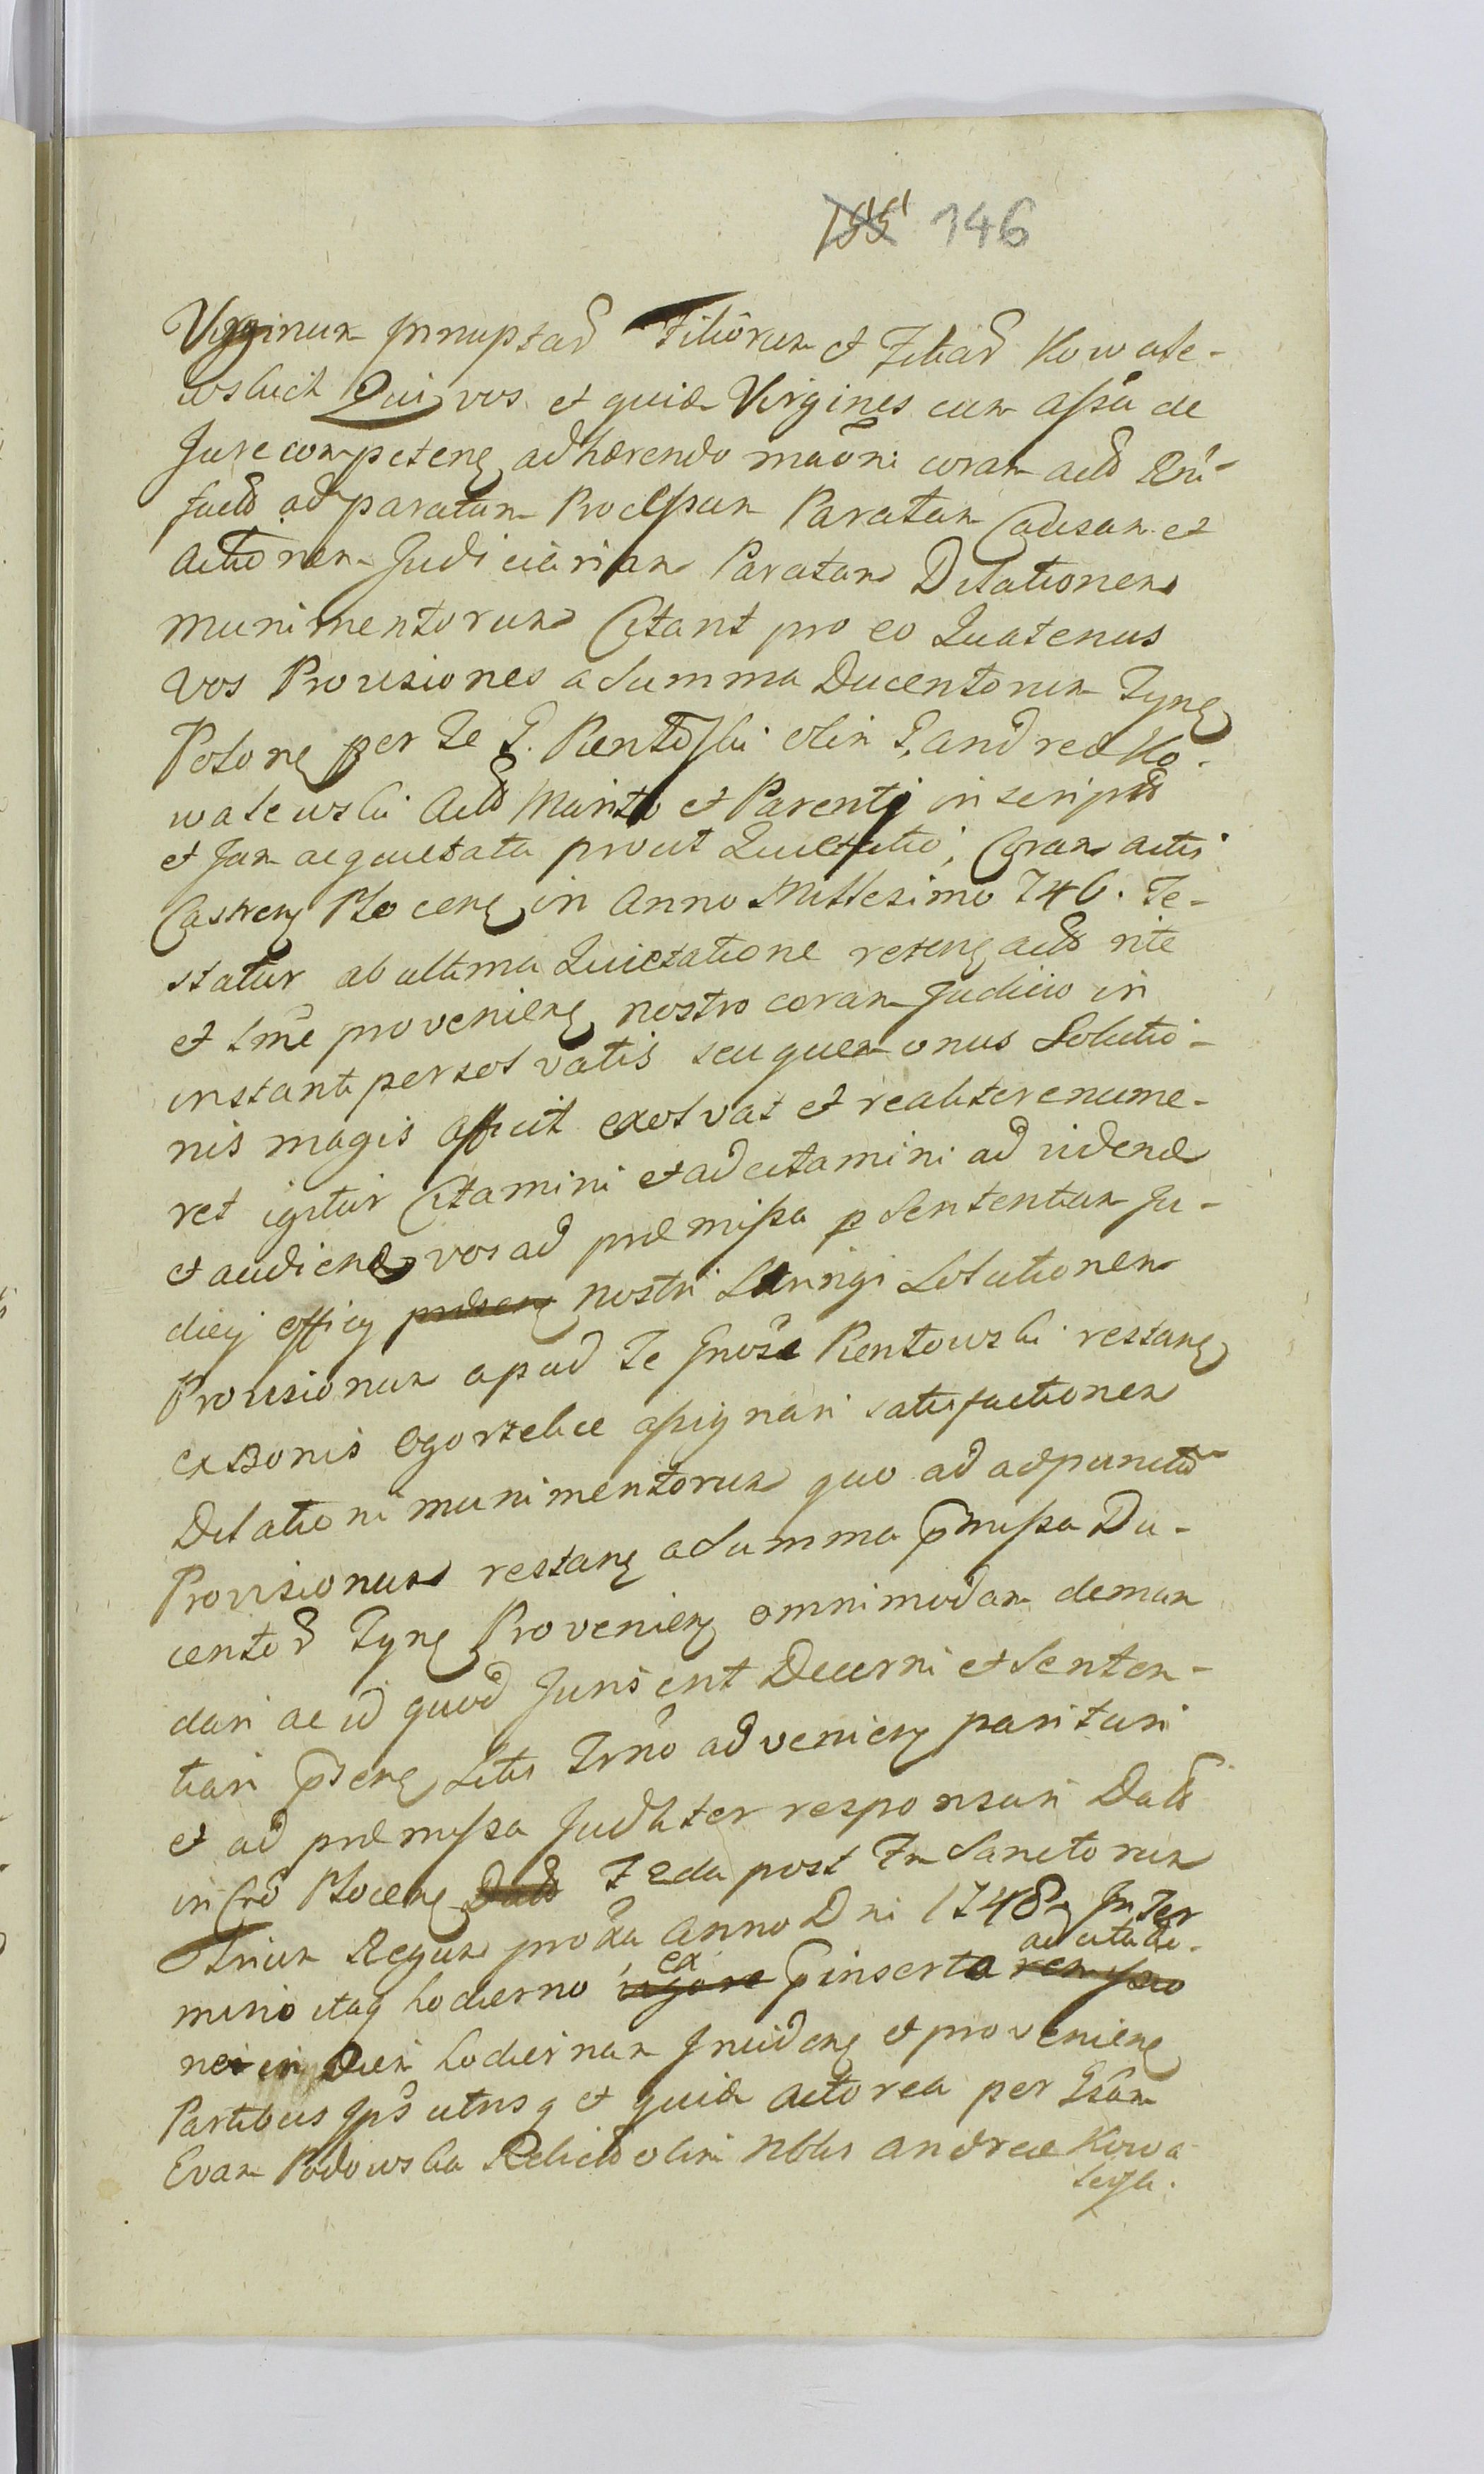 155 146
Virginum Innuptar Filiorum et Filiar Kowale-
wskich Qui vos et quidē Virgines cum assā de
Jure competenẹ adhærendo mãõni coram actis
factā ad paratum Processum Paratam Causam et
Actionem Judiciariam Paratam Dilationem
munimentorum Citant pro eo Quatenus
Vos Provisiones a Summa Ducentorum Tynẹ
Polonẹ per Te G. Rentowski olim G. Andreæ Ko-
walewski Marito et Parenti inscripta
et Jam aequietata prout Quietatio, Coram actis
Castrenẹ Plocenẹ in Anno Millesimo 746. Te-
statur ab ultima Quietatione retenẹ rite
et lm̃e provenienẹ nostro coram Judicio in
instanti persolvatis seu quem onus Solutio-
nis magis afficit exolvat et realiter enume-
ret igitur Citamini et adcitamini ad videnḍ
et audienḍ vos ad præmissa p Sententiam Ju-
dicij officij præsenẹ nostri Stringi Solutionem
Provisionum apud Te Gnõse Rentowski restanẹ
ex Bonis Ogorzelice assignari satisfactionem
Dilationi munimentorum quo ad adpunctũ
Provisionum restanẹ a Summa p̃missa Du-
centor Tynẹ Provenienẹ omnimodam deman
dari ac id quod Juris erit Decerni et Senten-
tiari p̃senẹ Litis Trñõ advenienẹ parituri
et ad præmissa Judlıter responsuri Datt
in Crõ Plocenẹ Datt Feria 2da post Fm Sanctorum
Trium Regum proxa Anno Dni 1748. In Ter
mino itaq hodierno vigore ex p̃inserta remissio ad citatio-
ne in Diem hodiernam Incidenẹ et provenienẹ
Partibus Ips̃ utrisq et quidē Actorea per Gsām
Evam Podowska Relictā olim Nblis Andreæ Kowa
lewski.